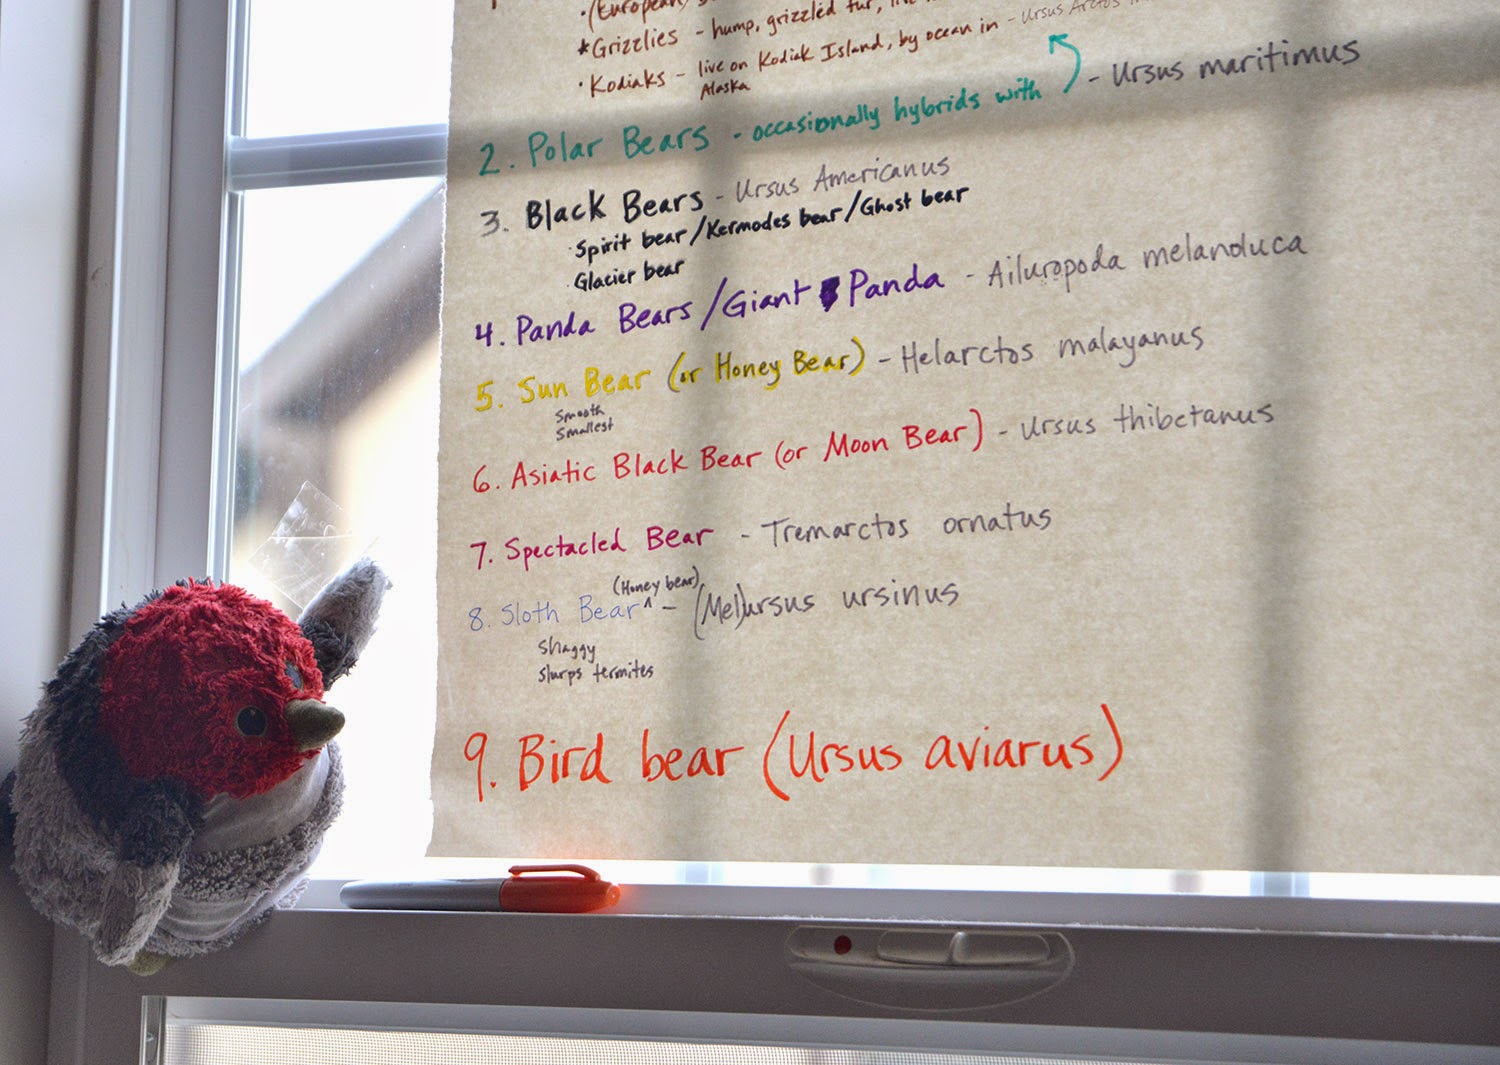 (European)
*Grizzlies - hump, grizzled fur,
· Kodiaks - live on Kodiak Island, by ocean in - Ursus Arctos
Alaska
2. Polar Bears - occasionally hybrids with - Ursus maritimus
3. Black Bears - Ursus Americanus
· Spirit bear/Kermodes bear/Ghost bear
· Glacier bear
4. Panda Bears/Giant Panda - Ailuropoda melanoluca
5. Sun Bear (or Honey Bear) - Helarctos malayanus
smooth
smallest
6. Asiatic Black Bear (or Moon Bear) - Ursus thibetanus
7. Spectacled Bear - Tremarctos ornatus
(Honey bear)
8. Sloth Bear ^ - (Mel)ursus ursinus
shaggy
slurps termites
9. Bird bear (Ursus aviarus)